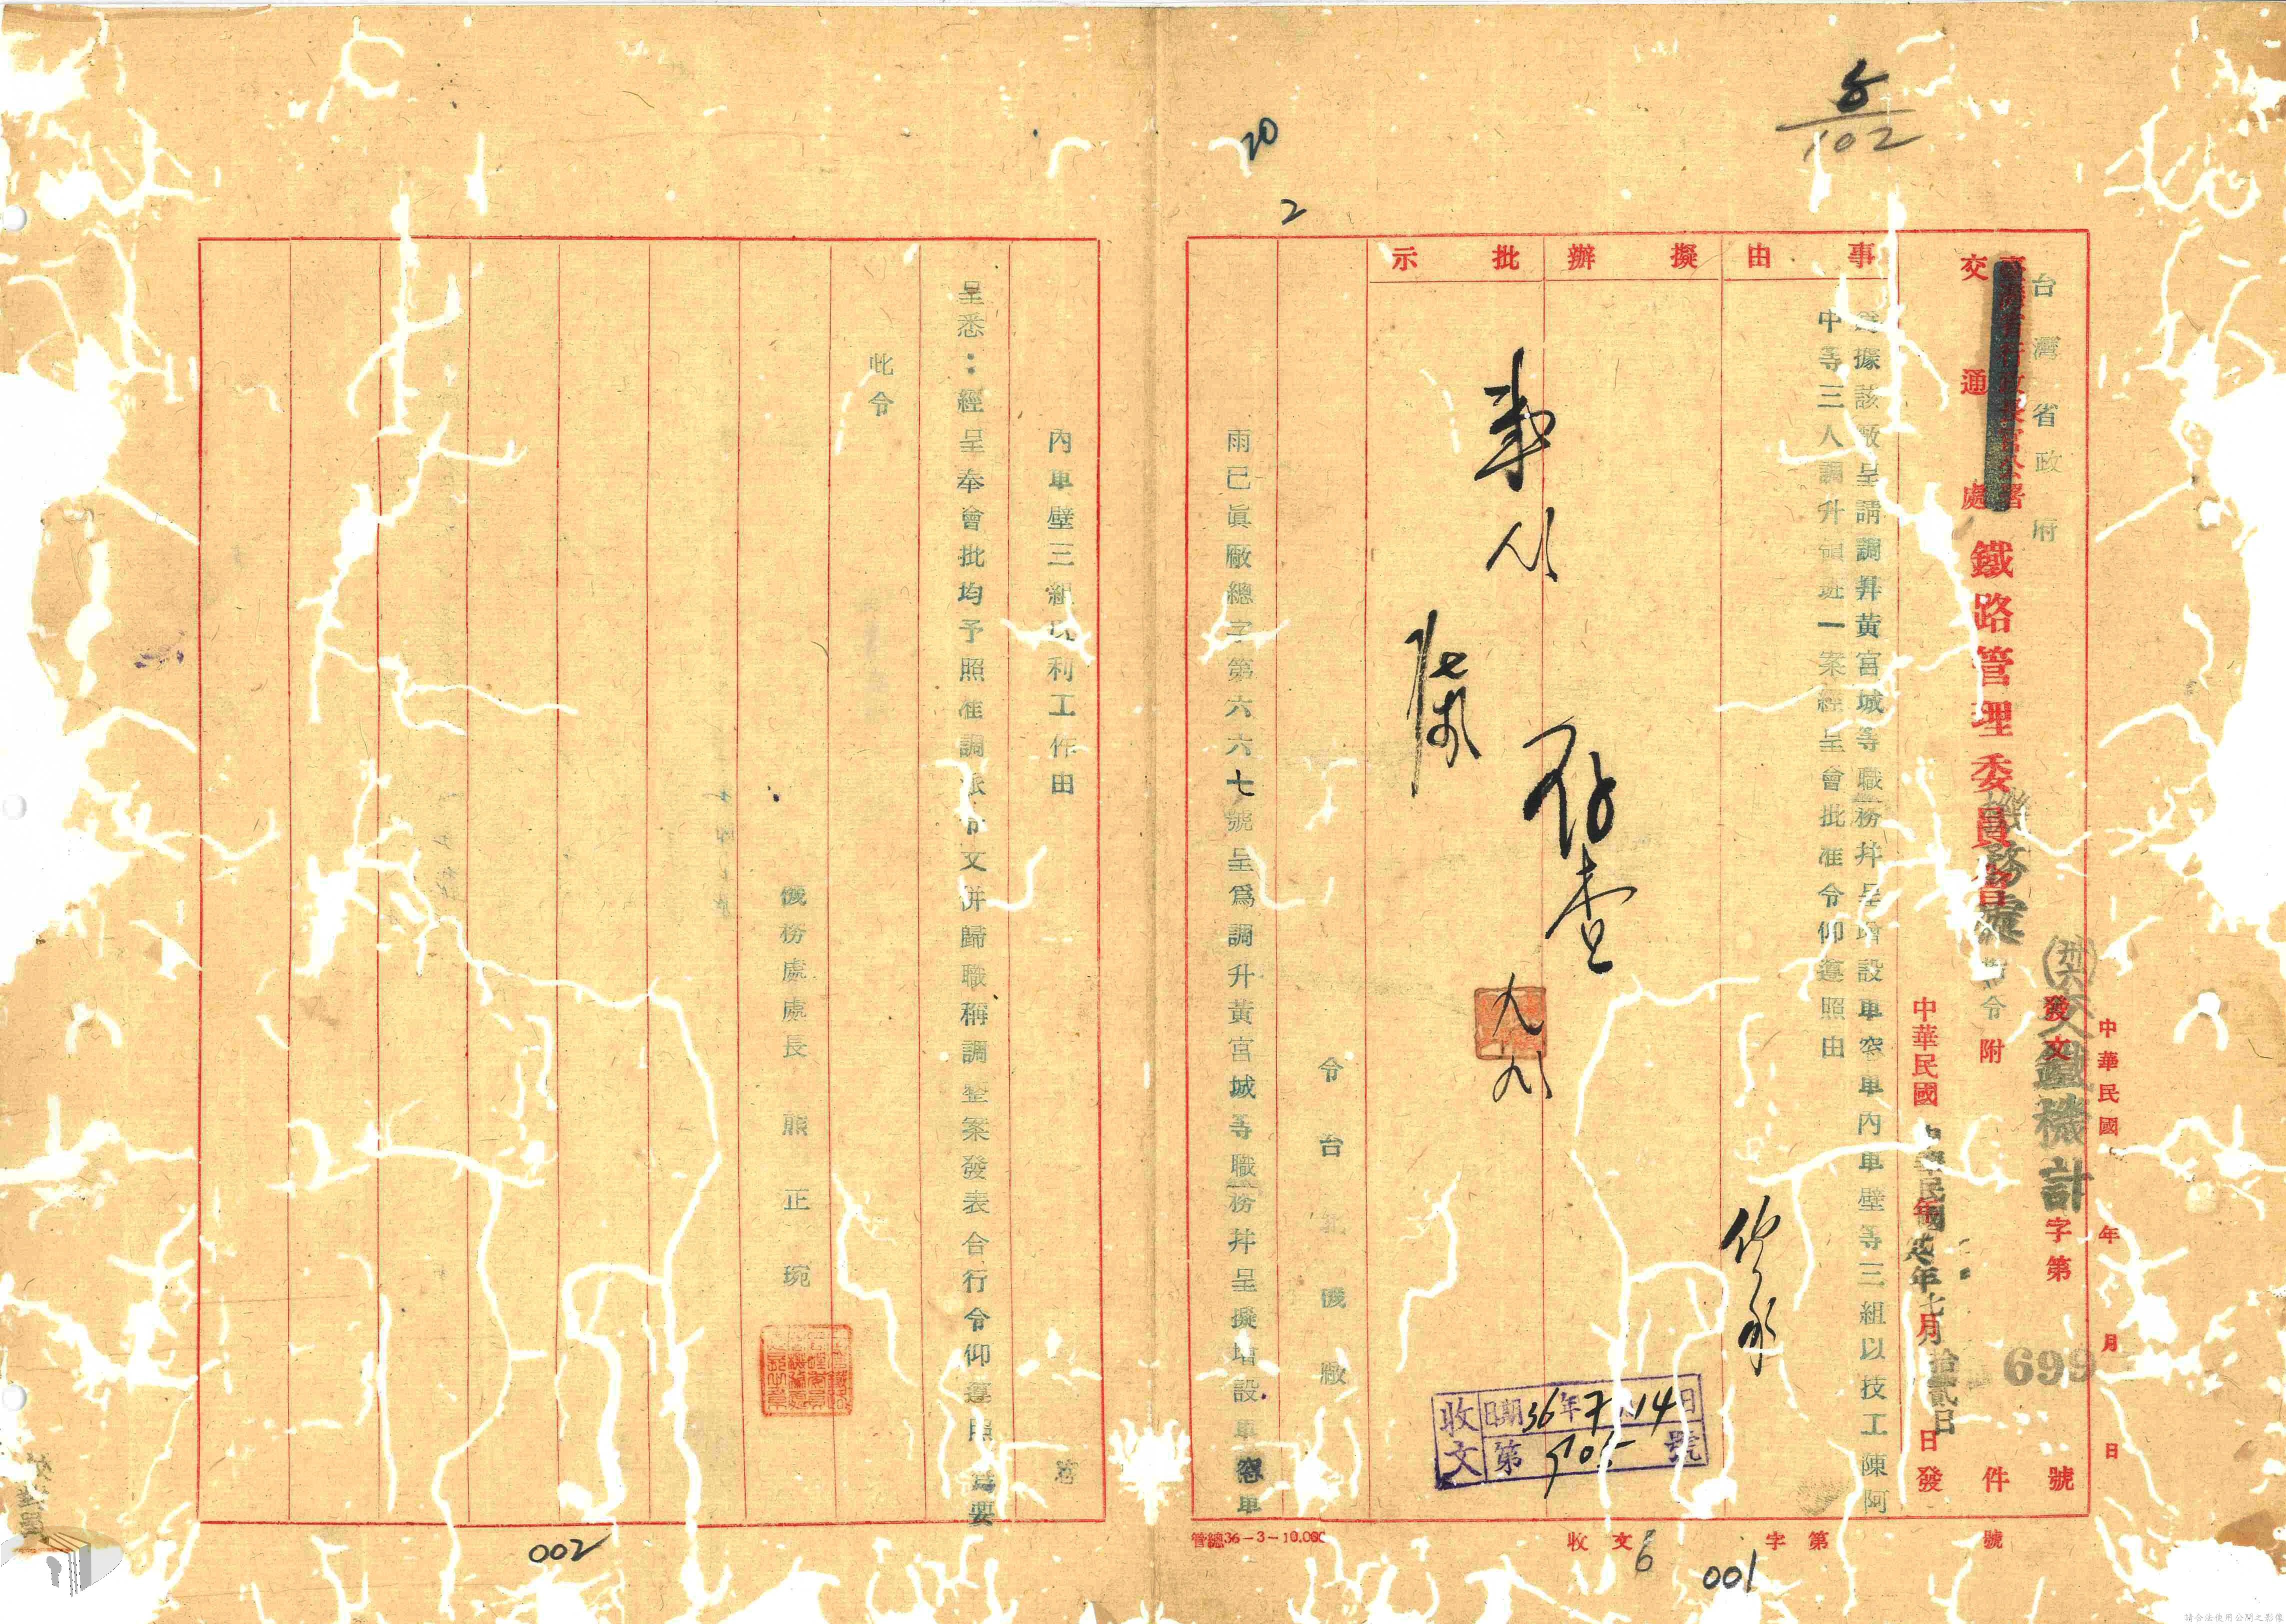 中華民國　年　月　日
(卅六)交鐵機計
發文　字第　699　號
台灣省政府
交通處
鐵路管理委員會
機務處　令
附　件
中華民國　年　月　日發
中華民國　年七月拾貳日
事由
擬辦
批示
為據該廠呈請調昇黃宮城等職務并呈增設車窓車內車壁等三組以技工陳阿
中等三人調升領班一案經呈會批准令仰遵照由
存查
九
收文
日期36年7月14日
第　號
令台北機廠
兩已真廠總字第六六七號呈為調升黃宮城等職務并呈擬增設車窓車
內車壁三組以利工作由
呈悉：經呈奉會批均予照准調派令文併歸職稱調整案發表合行令仰遵照為要
此令
機務處處長　熊正琬
管總36－3－10.000
收文　字第　號
8
102
20
2
6
001
002
請合法使用公開之影像